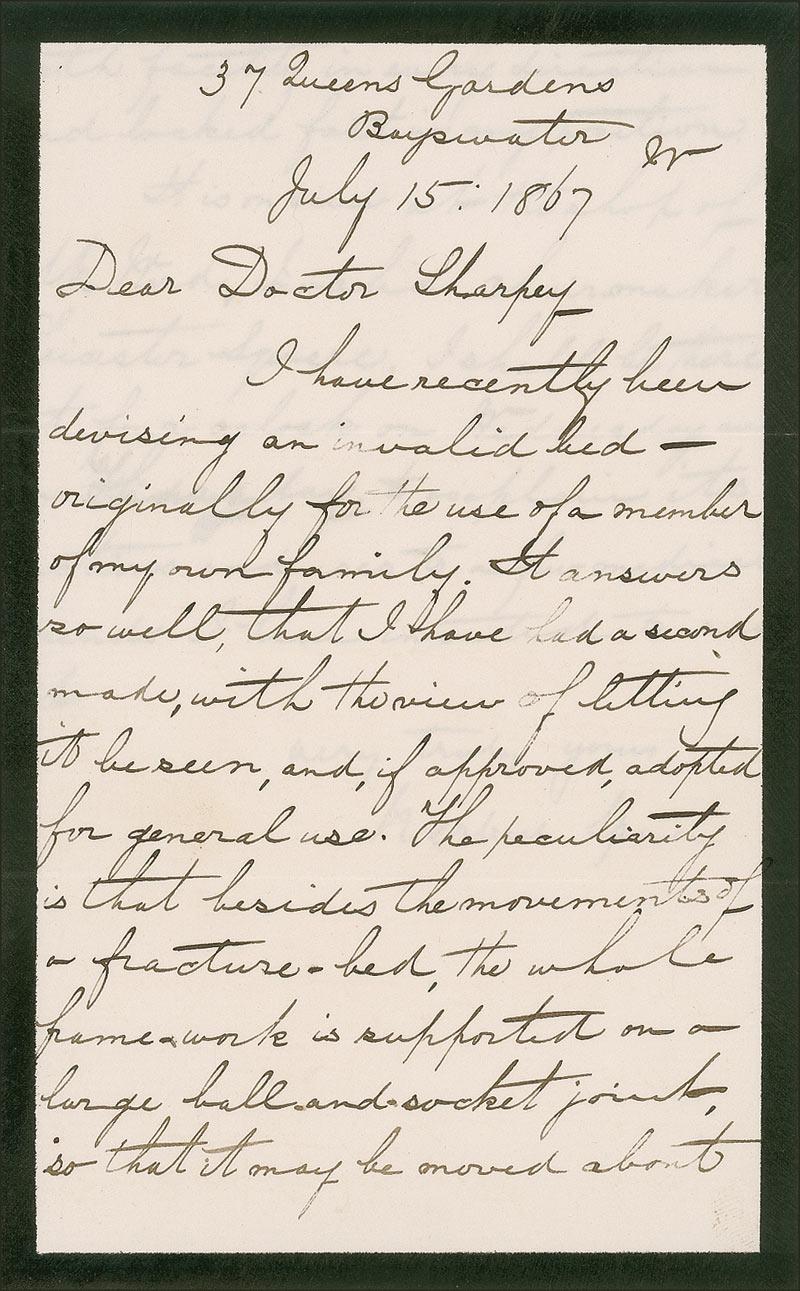 37 Queens Gardens
Bayswater W
July 15: 1867
Dear Doctor Sharpey
I have recently been
devising an invalid bed —
originally for the use of a member
of my own family. It answers
so well, that I have had a second
made, with the view of letting
it be seen, and, if approved, adopted
for general use. The peculiarity
is that besides the movements of
a fracture-bed, the whole
frame-work is supported on a
large ball-and-socket joint,
so that it may be moved about